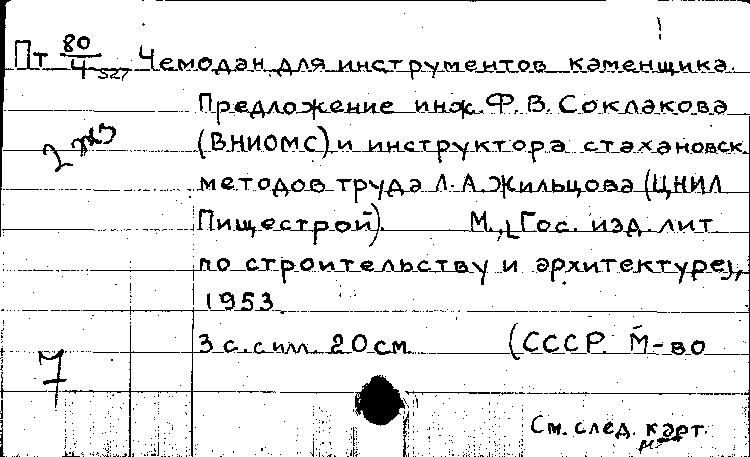 Пт 80/4-527 Чемодан для инструментов каменщика.
Предложение инж. Ф. В. Соклакова
2 экз
(ВНИОМС) и инструктора стахановск.
методов труда Л. А. Жильцова (ЦНИЛ
Пищестрой). М., [Гос. изд. лит
по строительству и архитектуре],
1953.
3 с. с илл. 20 см (СССР. М-во
7
См. след. карт.